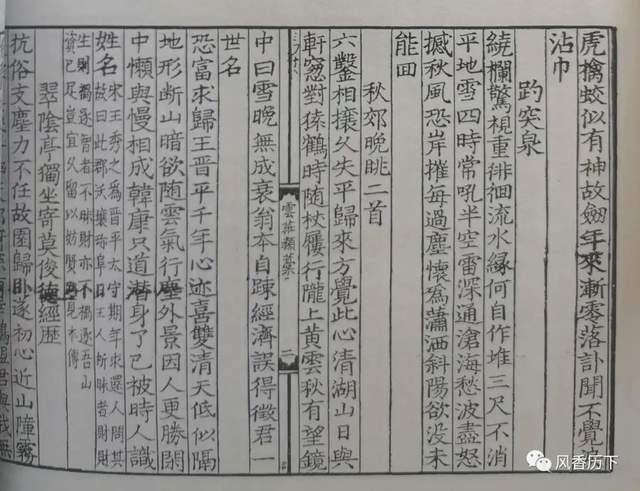 虎擒蛟似有神故劔年來漸零落訃聞不覺
沾巾
趵突泉
繞欄驚視重徘徊流水縁何自作堆三尺不消
平地雪四時常吼半空雷深通滄海愁波盡怒
撼秋風恐岸摧每過塵懷爲瀟洒斜陽欲没未
能回
秋郊晚眺二首
六鑿相攘久失平歸來方覺此心清湖山日與
軒窓對猿鶴時随杖屨行隴上黄雲秋有望鏡
雲莊類藁
二
中曰雪晚無成衰翁本自踈經濟誤得徵君一
世名
恐富求歸王晋平千年心迹喜雙清天低似隔
地形断山暗欲随雲氣行塵外景因人更勝閑
中懶與慢相成韓康只道潜身了已被時人識
姓名
宋王秀之爲晋平太守期年求還人問其
故曰此郡沃壤珎阜日至人所昧者財財
生則禍逐智者不昧財亦不禍逐吾山
資已足豈宜久留以妨賢路見本傳
翠陰亭獨坐寄俊德經歷
抗俗支塵力不任故園歸卧遂初心近山障霧
风香历下